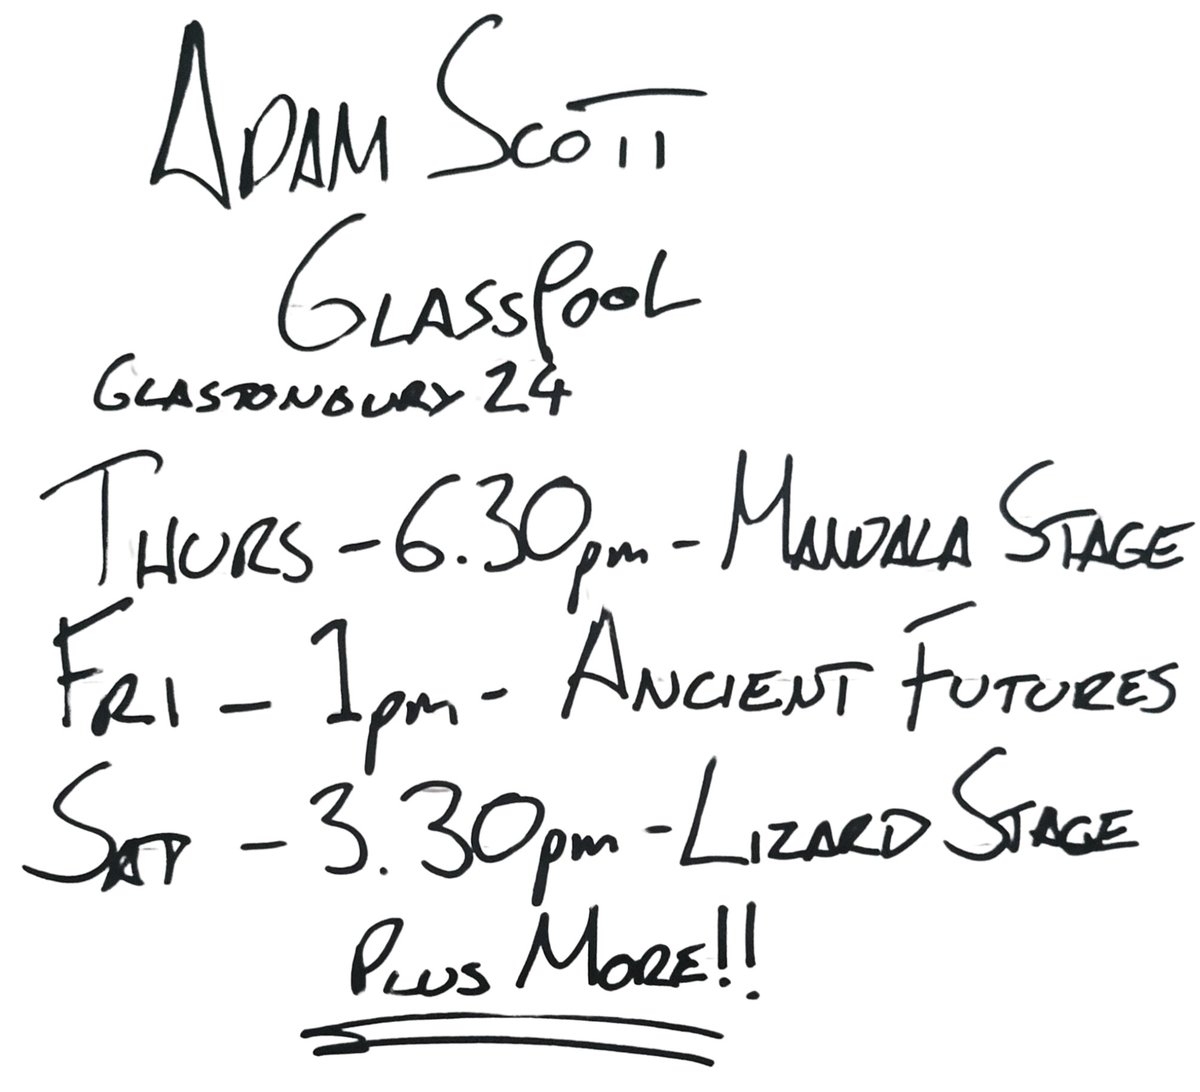 ADAM SCOTT
GLASSPOOL
GLASTONBURY 24
THURS - 6.30pm - MANDALA STAGE
FRI - 1pm - ANCIENT FUTURES
SAT - 3.30pm - LIZARD STAGE
PLUS MORE!!